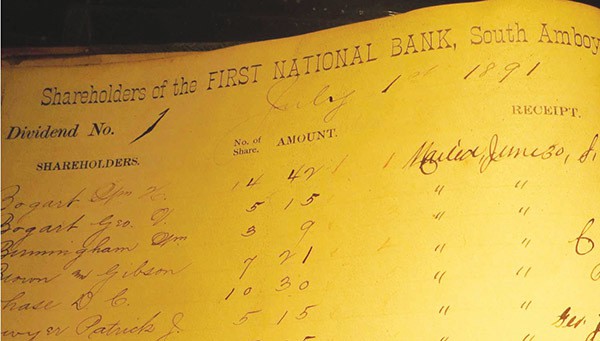 Shareholders of the FIRST NATIONAL BANK, South Amboy
July 1st 1891
Dividend No. 1
SHAREHOLDERS. No. of Share. AMOUNT. RECEIPT.
Bogart Wm H. 14 42 Mailed, June 30,
Bogart Geo. 5 15 " "
Birmingham Wm 3 9 " "
Brown Gibson 7 21 " "
Chase D C. 10 30 " "
Dwyer Patrick J. 5 15 " "